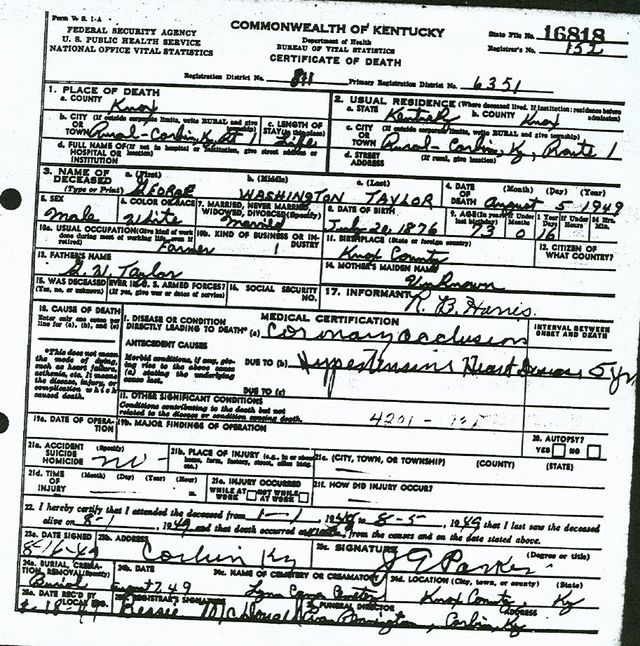 Form V. S. 1-A
FEDERAL SECURITY AGENCY
U. S. PUBLIC HEALTH SERVICE
NATIONAL OFFICE VITAL STATISTICS
COMMONWEALTH OF KENTUCKY
Department of Health
BUREAU OF VITAL STATISTICS
CERTIFICATE OF DEATH
State File No. 16818
Registrar's No. 152
Registration District No. Primary Registration District No. 6351
1. PLACE OF DEATH
a. COUNTY Knox
b. CITY (If outside corporate limits, write RURAL and give
OR TOWN Rural-Corbin, Ky Rt 1
c. LENGTH OF STAY (in this place) Life
d. FULL NAME OF (If not in hospital or institution, give street address or location)
HOSPITAL OR INSTITUTION
2. USUAL RESIDENCE (Where deceased lived. If institution: residence before admission)
a. STATE Kentucky b. COUNTY Knox
c. CITY (If outside corporate limits, write RURAL and give township)
OR TOWN Rural-Corbin Ky, Route 1
d. STREET ADDRESS (If rural, give location)
3. NAME OF DECEASED (Type or Print)
a. (First) b. (Middle) c. (Last)
GEORGE WASHINGTON TAYLOR
4. DATE OF DEATH (Month) (Day) (Year)
August 5 1949
5. SEX Male
6. COLOR OR RACE White
7. MARRIED, NEVER MARRIED, WIDOWED, DIVORCED (Specify) Married
8. DATE OF BIRTH July 20, 1876
9. AGE (In years last birthday) 73 0 16
10a. USUAL OCCUPATION (Give kind of work done during most of working life, even if retired) Farmer
10b. KIND OF BUSINESS OR INDUSTRY
11. BIRTHPLACE (State or foreign country) Knox County
12. CITIZEN OF WHAT COUNTRY?
13. FATHER'S NAME
G. W. Taylor
14. MOTHER'S MAIDEN NAME
Unknown
15. WAS DECEASED EVER IN U. S. ARMED FORCES?
(Yes, no, or unknown) (If yes, give war or dates of service)
16. SOCIAL SECURITY NO.
17. INFORMANT
R. B. Harris
18. CAUSE OF DEATH
Enter only one cause per line for (a), (b), and (c)
*This does not mean the mode of dying, such as heart failure, asthenia, etc. It means the disease, injury, or complication which caused death.
MEDICAL CERTIFICATION
INTERVAL BETWEEN ONSET AND DEATH
I. DISEASE OR CONDITION DIRECTLY LEADING TO DEATH* (a) Coronary occlusion
ANTECEDENT CAUSES
Morbid conditions, if any, giving rise to the above cause (a) stating the underlying cause last.
DUE TO (b) Hypertensive Heart Disease 5 yrs
DUE TO (c)
II. OTHER SIGNIFICANT CONDITIONS
Conditions contributing to the death but not related to the disease or condition causing death.
4201
19a. DATE OF OPERATION
19b. MAJOR FINDINGS OF OPERATION
20. AUTOPSY?
YES NO
21a. ACCIDENT SUICIDE HOMICIDE (Specify) no
21b. PLACE OF INJURY (e.g., in or about home, farm, factory, street, office bldg., etc.)
21c. (CITY, TOWN, OR TOWNSHIP) (COUNTY) (STATE)
21d. TIME OF INJURY (Month) (Day) (Year) (Hour) m.
21e. INJURY OCCURRED
WHILE AT WORK NOT WHILE AT WORK
21f. HOW DID INJURY OCCUR?
22. I hereby certify that I attended the deceased from 1-1, 1948 to 8-5, 1949 that I last saw the deceased
alive on 8-1, 1949 and that death occurred at m., from the causes and on the date stated above.
23a. DATE SIGNED 8-16-49
23b. ADDRESS Corbin Ky
23c. SIGNATURE (Degree or title)
J G Parker
24a. BURIAL, CREMATION, REMOVAL (Specify) Burial
24b. DATE August 7. 49
24c. NAME OF CEMETERY OR CREMATORY
24d. LOCATION (City, town, or county) (State)
Knox County Ky
25a. DATE REC'D BY LOCAL REG.
25b. REGISTRAR'S SIGNATURE
Bessie
FUNERAL DIRECTOR ADDRESS
Corbin, Ky